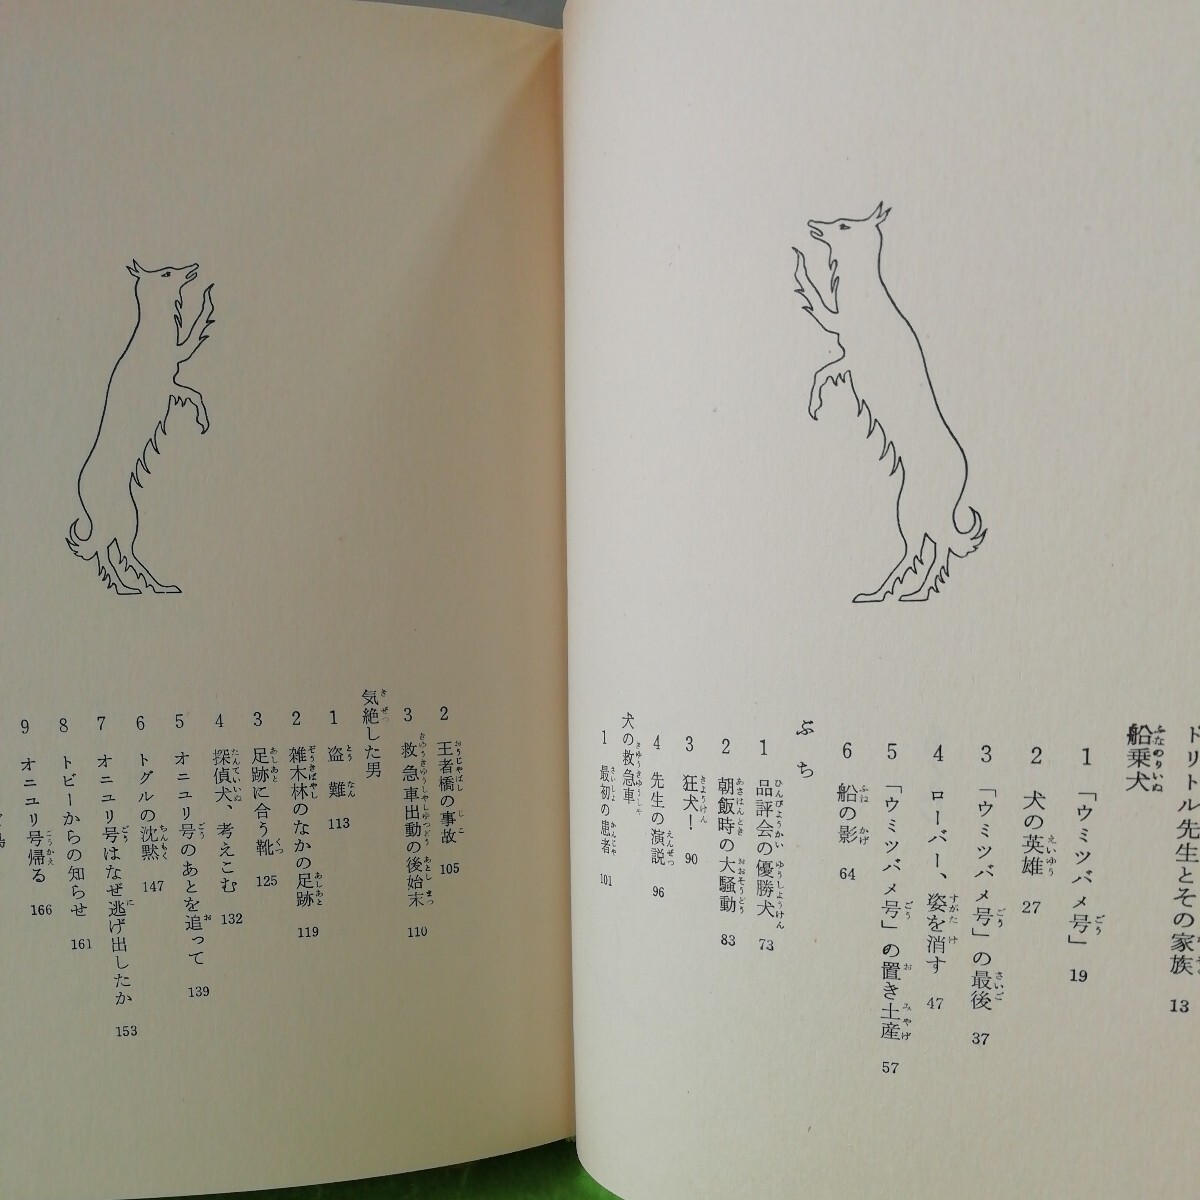 ドリトル先生とその家族 13
船乗犬
1 「ウミツバメ号」 19
2 犬の英雄 27
3 「ウミツバメ号」の最後 37
4 ローバー、姿を消す 47
5 「ウミツバメ号」の置き土産 57
6 船の影 64
ぶち
1 品評会の優勝犬 73
2 朝飯時の大騒動 83
3 狂犬! 90
4 先生の演説 96
犬の救急車
1 最初の患者 101
2 王者橋の事故 105
3 救急車出動の後始末 110
気絶した男
1 盗難 113
2 雑木林のなかの足跡 119
3 足跡に合う靴 125
4 探偵犬、考えこむ 132
5 オニユリ号のあとを追って 139
6 トグルの沈黙 147
7 オニユリ号はなぜ逃げ出したか 153
8 トビーからの知らせ 161
9 オニユリ号帰る 166